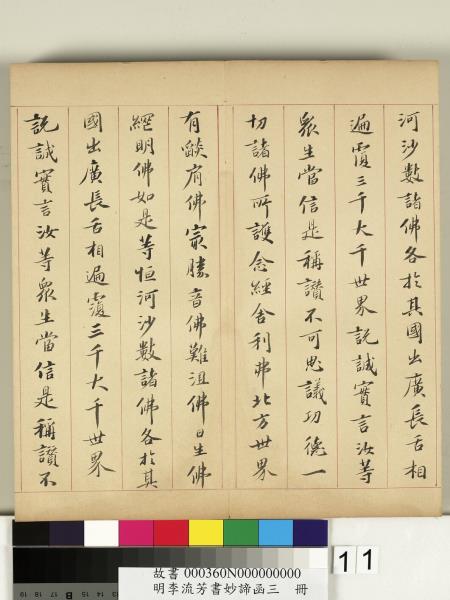 河沙數諸佛各於其國出廣長舌相
遍覆三千大千世界說誠實言汝等
眾生當信是稱讚不可思議功德一
切諸佛所護念經舍利弗北方世界
有燄肩佛最勝音佛難沮佛日生佛
網明佛如是等恒河沙數諸佛各於其
國出廣長舌相遍覆三千大千世界
說誠實言汝等眾生當信是稱讚不
11
故書 000360N000000000
明李流芳書妙諦函三 冊